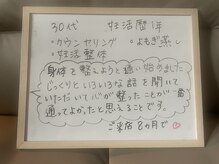 30代 妊活歴1年
・カウンセリング ・よもぎ蒸し
・妊活整体
身体を整えようと通い始めました
じっくりといろいろな話を聞いて
いただいて心が整ったことが一番
通ってよかったと思えることです。
ご来店8ヵ月で♡